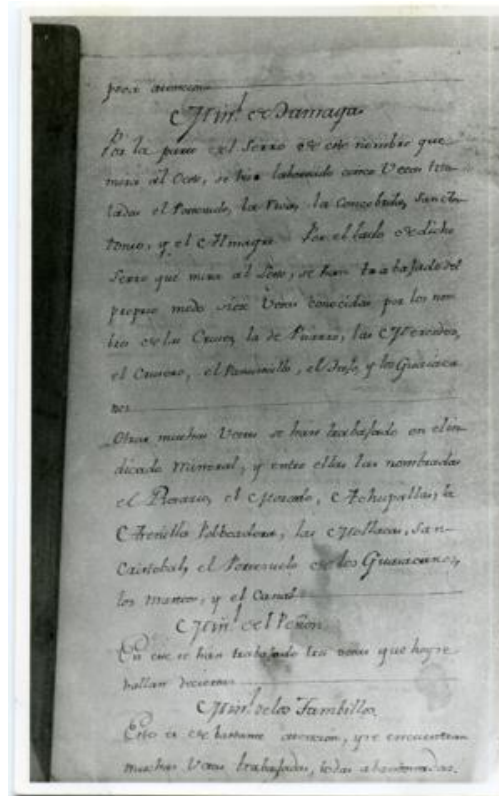 poca atencion
Min.l de Tamaya
Por la parte del Serro de este nombre que
mira al Oeste, se han laboreado cinco Vetas titu-
ladas el Rosario, la Rosa, la Consebida, San An-
tonio, y el Almagre. Por el lado de dicho
Serro que mira al Leste, se han trabajado del
proprio modo siete Vetas conocidas por los nom-
bres de las Cruces, la de Pizarro, las Mercedes,
el Crusero, el el y los Guaiaca
nes
Otras muchas Vetas se han trabajado en el in-
dicado Mineral, y entre ellas las nombradas
el Rosario, el Morado, Achupallas, la
Arenilla Pobeadora, las Mollacas, San-
Cristobal, el Portesuelo de los Guaiacanes,
los Mantos, y el Canal
Min.l del Peñon
En este se han trabajado tres vetas que hoy se
hallan desiertas
Min.l de los Tambillos
Esto es de bastante atencion, y se encuentran
muchas Vetas trabajadas, todas abandonadas.